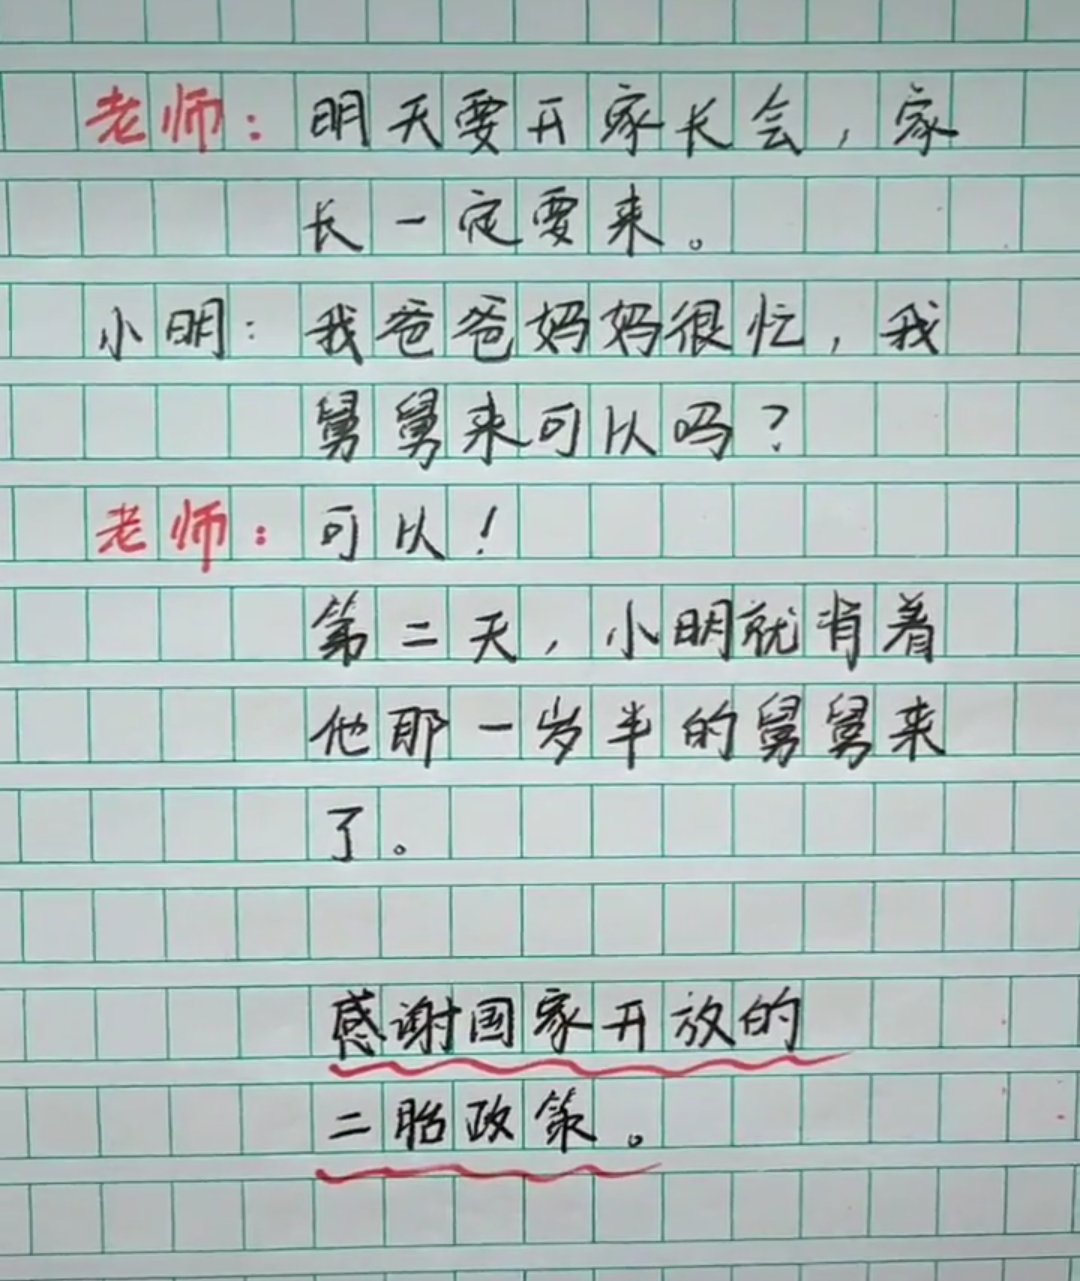 老师：明天要开家长会，家
长一定要来。
小明：我爸爸妈妈很忙，我
舅舅来可以吗？
老师：可以！
第二天，小明就背着
他那一岁半的舅舅来
了。
感谢国家开放的
二胎政策。